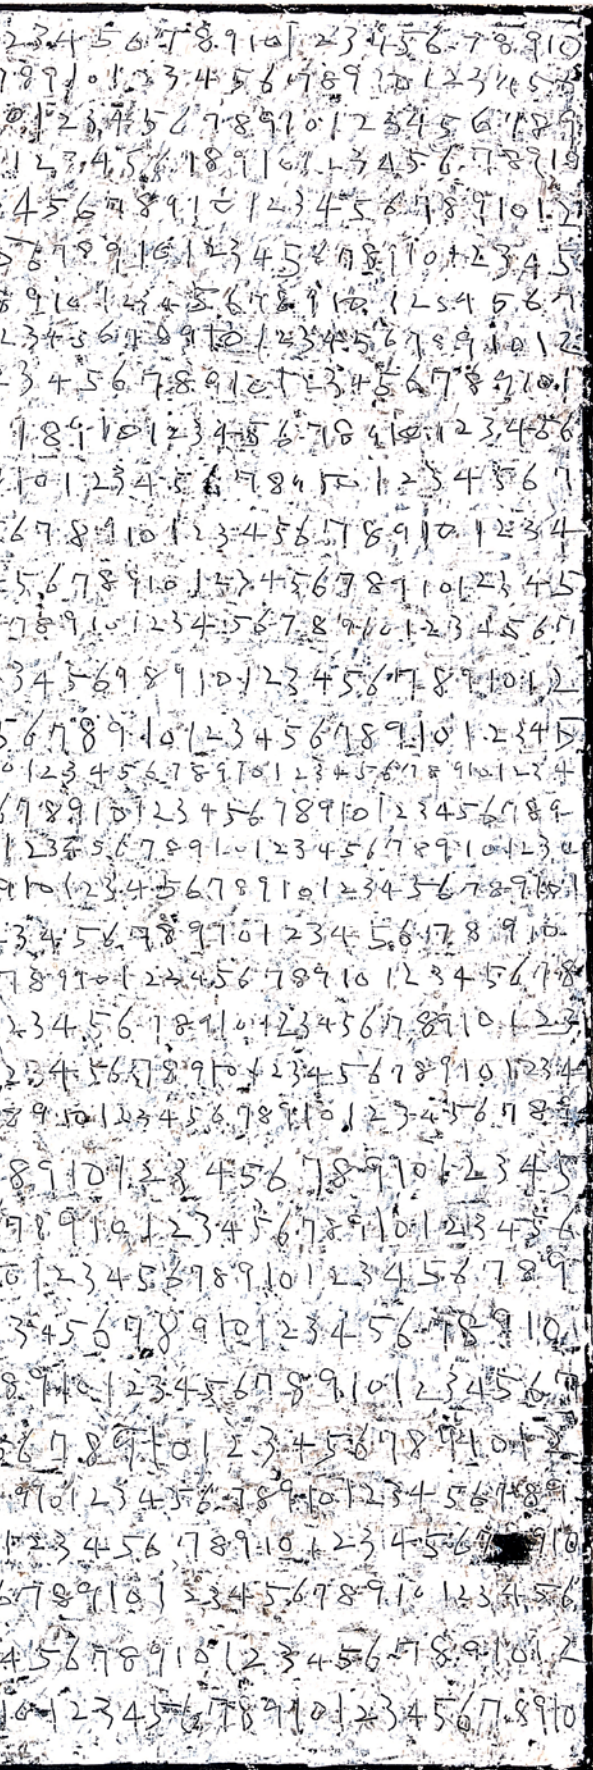 2 3 4 5 6 7 8 9 10 1 2 3 4 5 6 7 8 9 10
7 8 9 10 1 2 3 4 5 6 7 8 9 10 1 2 3 4 5 6
10 1 2 3 4 5 6 7 8 9 10 1 2 3 4 5 6 7 8 9
1 2 3 4 5 6 7 8 9 10 1 2 3 4 5 6 7 8 9 10
4 5 6 7 8 9 10 1 2 3 4 5 6 7 8 9 10 1 2
5 6 7 8 9 10 1 2 3 4 5 6 7 8 9 10 1 2 3 4 5
8 9 10 1 2 3 4 5 6 7 8 9 10 1 2 3 4 5 6 7
2 3 4 5 6 7 8 9 10 1 2 3 4 5 6 7 8 9 10 1 2
3 4 5 6 7 8 9 10 1 2 3 4 5 6 7 8 9 10 1
7 8 9 10 1 2 3 4 5 6 7 8 9 10 1 2 3 4 5 6
10 1 2 3 4 5 6 7 8 9 10 1 2 3 4 5 6 7
6 7 8 9 10 1 2 3 4 5 6 7 8 9 10 1 2 3 4
5 6 7 8 9 10 1 2 3 4 5 6 7 8 9 10 1 2 3 4 5
7 8 9 10 1 2 3 4 5 6 7 8 9 10 1 2 3 4 5 6 7
3 4 5 6 7 8 9 10 1 2 3 4 5 6 7 8 9 10 1 2
5 6 7 8 9 10 1 2 3 4 5 6 7 8 9 10 1 2 3 4 5
0 1 2 3 4 5 6 7 8 9 10 1 2 3 4 5 6 7 8 9 10 1 2 3 4
6 7 8 9 10 1 2 3 4 5 6 7 8 9 10 1 2 3 4 5 6 7 8 9
1 2 3 4 5 6 7 8 9 10 1 2 3 4 5 6 7 8 9 10 1 2 3 4
9 10 1 2 3 4 5 6 7 8 9 10 1 2 3 4 5 6 7 8 9 10 1
3 4 5 6 7 8 9 10 1 2 3 4 5 6 7 8 9 10
7 8 9 10 1 2 3 4 5 6 7 8 9 10 1 2 3 4 5 6 7 8
2 3 4 5 6 7 8 9 10 1 2 3 4 5 6 7 8 9 10 1 2 3
2 3 4 5 6 7 8 9 10 1 2 3 4 5 6 7 8 9 10 1 2 3 4
8 9 10 1 2 3 4 5 6 7 8 9 10 1 2 3 4 5 6 7 8 9
8 9 10 1 2 3 4 5 6 7 8 9 10 1 2 3 4 5
7 8 9 10 1 2 3 4 5 6 7 8 9 10 1 2 3 4 5 6
0 1 2 3 4 5 6 7 8 9 10 1 2 3 4 5 6 7 8 9
3 4 5 6 7 8 9 10 1 2 3 4 5 6 7 8 9 10
8 9 10 1 2 3 4 5 6 7 8 9 10 1 2 3 4 5 6 7
5 6 7 8 9 10 1 2 3 4 5 6 7 8 9 10 1 2
9 10 1 2 3 4 5 6 7 8 9 10 1 2 3 4 5 6 7 8 9
1 2 3 4 5 6 7 8 9 10 1 2 3 4 5 6 7 9 10
6 7 8 9 10 1 2 3 4 5 6 7 8 9 10 1 2 3 4 5 6
4 5 6 7 8 9 10 1 2 3 4 5 6 7 8 9 10 1 2
10 1 2 3 4 5 6 7 8 9 10 1 2 3 4 5 6 7 8 9 10